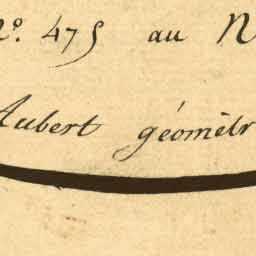 N°. 475 au N
Aubert géomètr